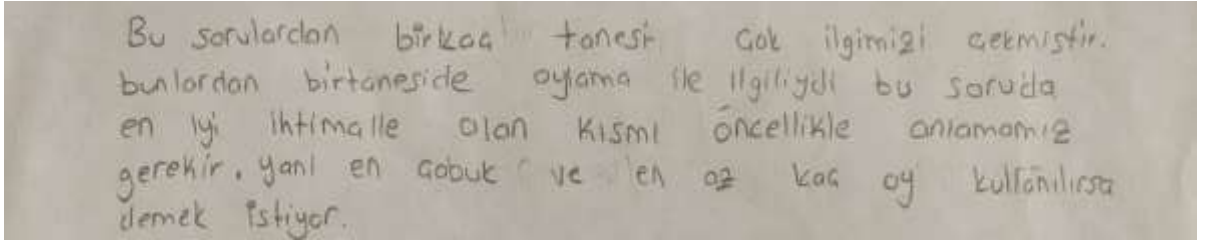 Bu sorulardan birkaç tanesi çok ilgimizi çekmiştir.
bunlardan birtaneside oylama ile ilgiliydi bu soruda
en iyi ihtimalle olan kısmı öncellikle anlamamız
gerekir. yani en çobuk ve en az kaç oy kullanılırsa
demek istiyor.